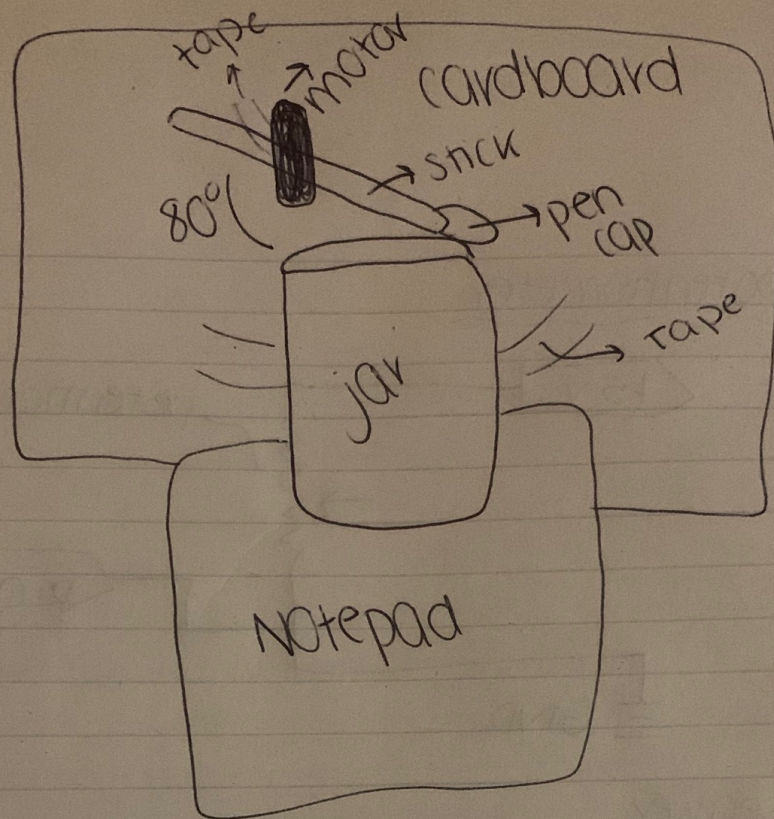 tape
motor
cardboard
stick
80°
pen
cap
jar
Tape
Notepad